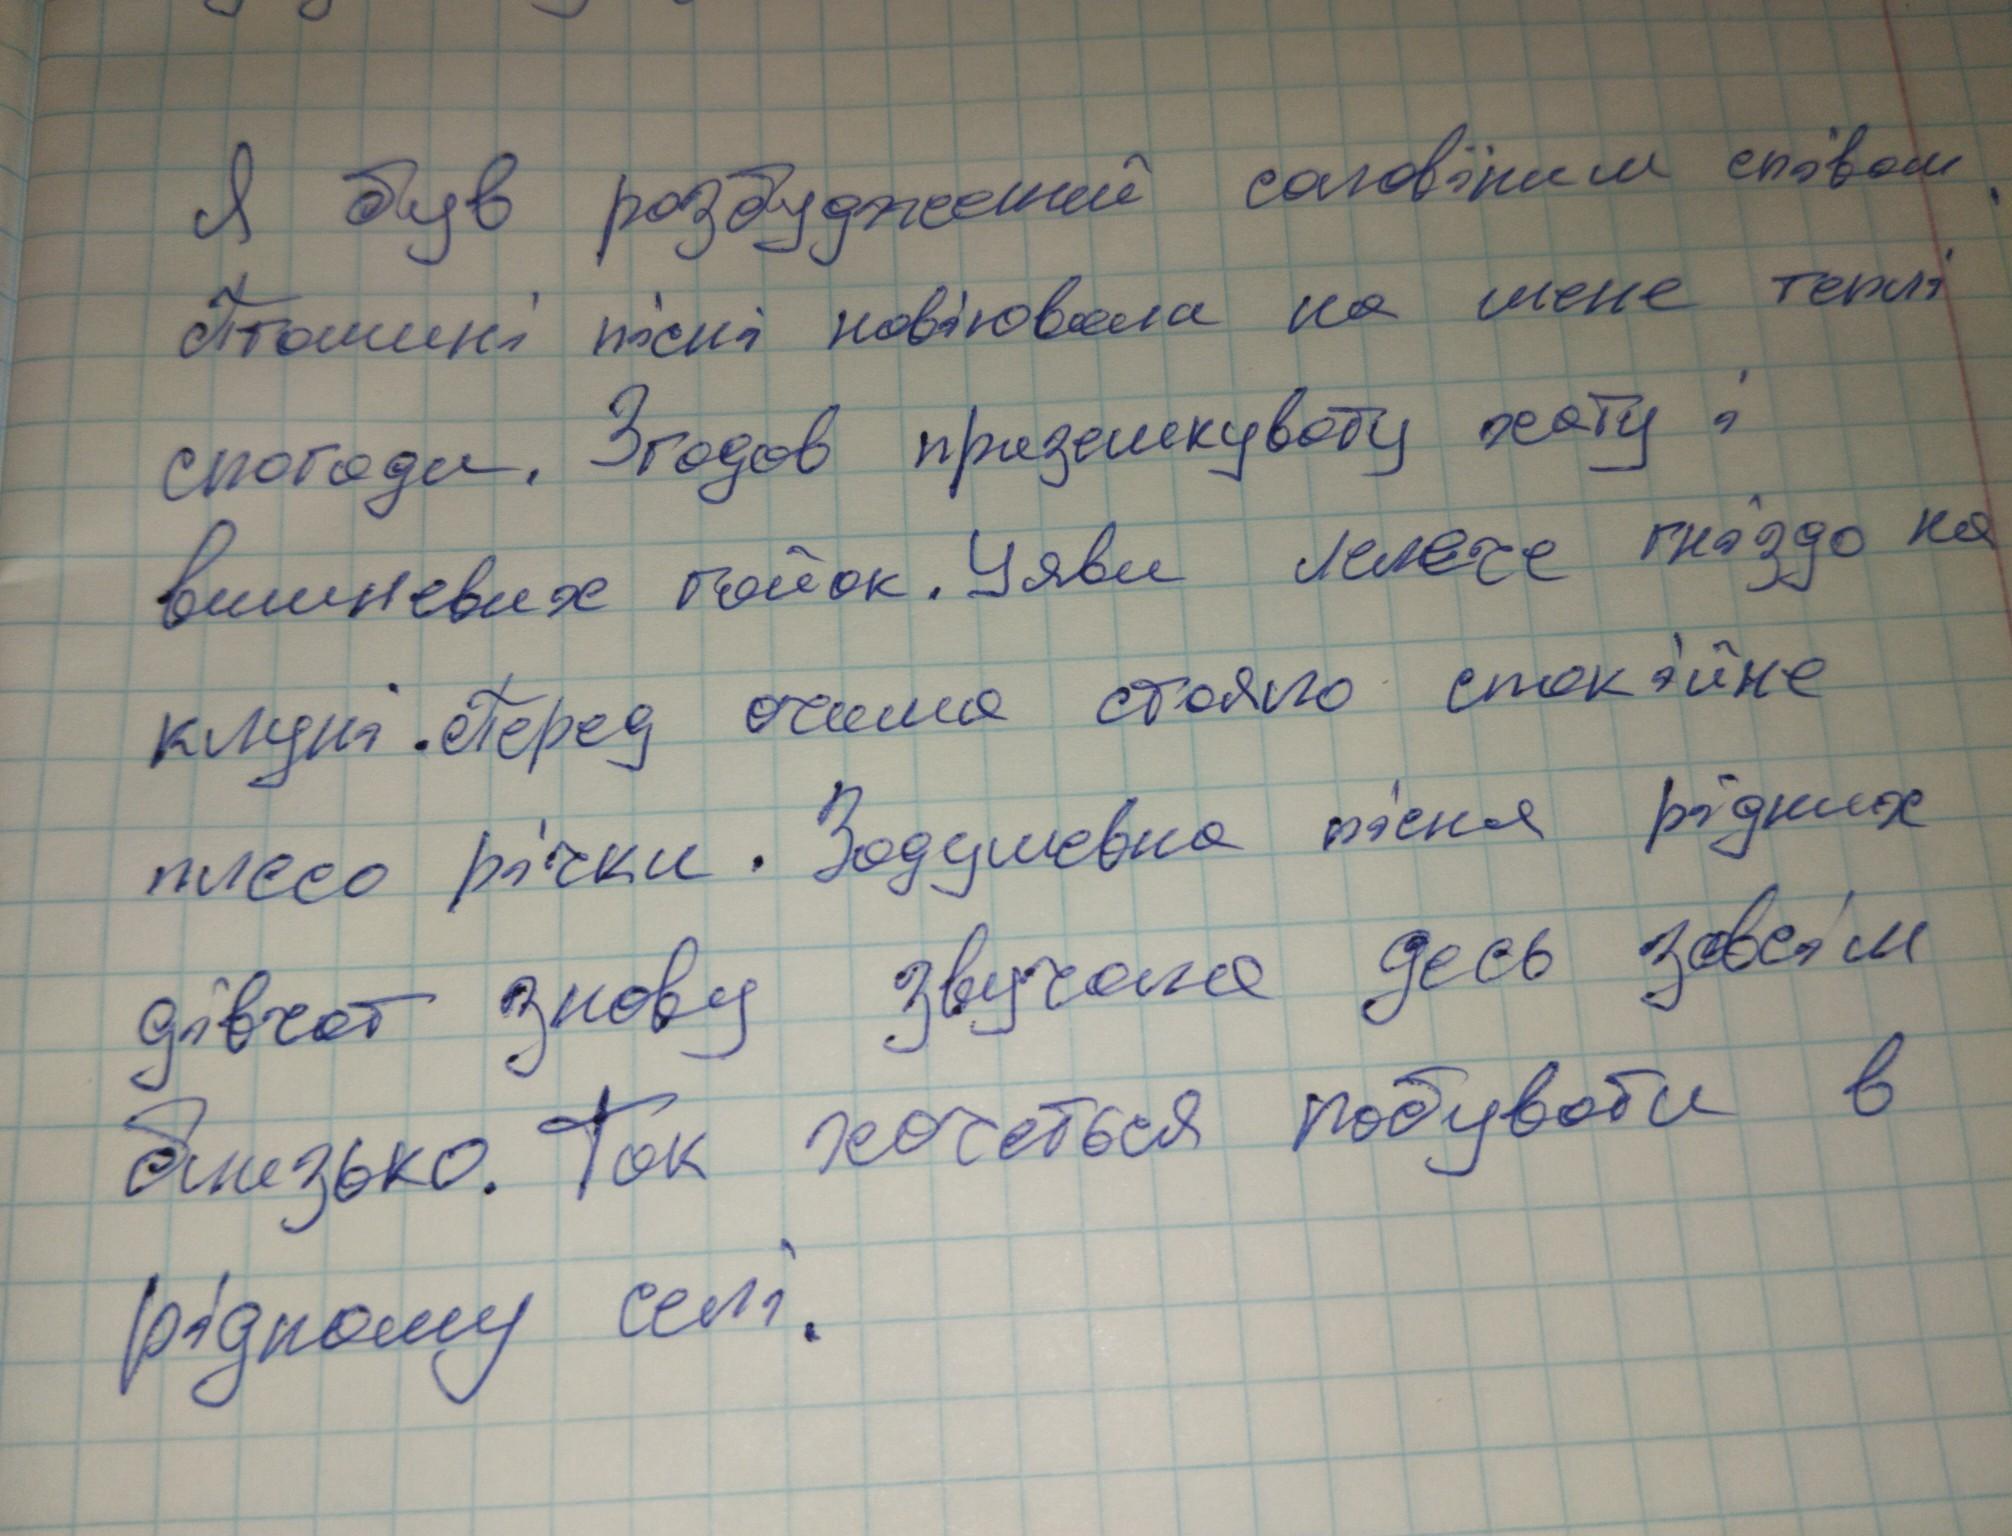 Я був розбуджений солов'їним співом.
Пташині пісні навіювала на мене теплі
спогади. Згадав приземкувату хату і
вишневих гайок. Уяви лелече гніздо на
клуні. Перед очима стояло спокійне
плесо річки. Задушевна пісня рідних
дівчат знову звучала десь зовсім
близько. Так хочеться побувати в
рідному селі.